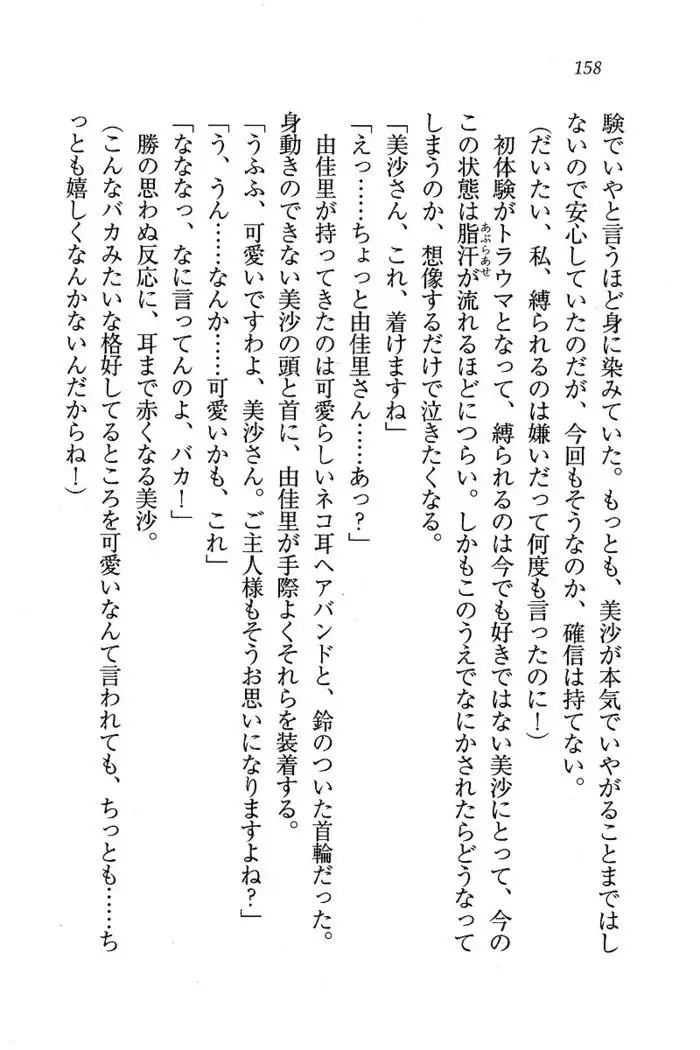 158
験でいやと言うほど身に染みていた。もっとも、美沙が本気でいやがることまではし
ないので安心していたのだが、今回もそうなのか、確信は持てない。
(だいたい、私、縛られるのは嫌いだって何度も言ったのに！)
初体験がトラウマとなって、縛られるのは今でも好きではない美沙にとって、今の
この状態は脂汗が流れるほどにつらい。しかもこのうえでなにかされたらどうなって
あぶらあせ
しまうのか、想像するだけで泣きたくなる。
「美沙さん、これ、着けますね」
「えっ……ちょっと由佳里さん……あっ？」
由佳里が持ってきたのは可愛らしいネコ耳ヘアバンドと、鈴のついた首輪だった。
身動きのできない美沙の頭と首に、由佳里が手際よくそれらを装着する。
「うふふ、可愛いですわよ、美沙さん。ご主人様もそうお思いになりますよね？」
「う、うん……なんか……可愛いかも、これ」
「なななっ、なに言ってんのよ、バカ！」
勝の思わぬ反応に、耳まで赤くなる美沙。
(こんなバカみたいな格好してるところを可愛いなんて言われても、ちっとも……ち
っとも嬉しくなんかないんだからね！)